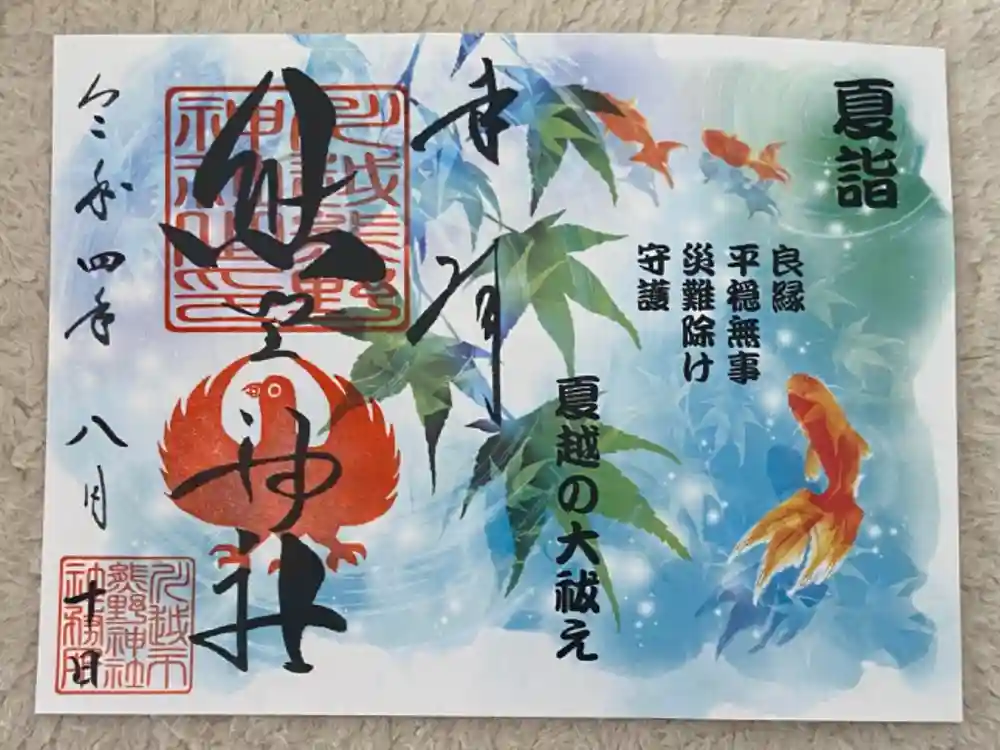 夏詣
良縁
平穏無事
災難除け
守護
夏越の大祓え
奉拝
熊野神社
川越熊野
神社之印
令和四年 八月
十日
川越市
熊野神社
社務所